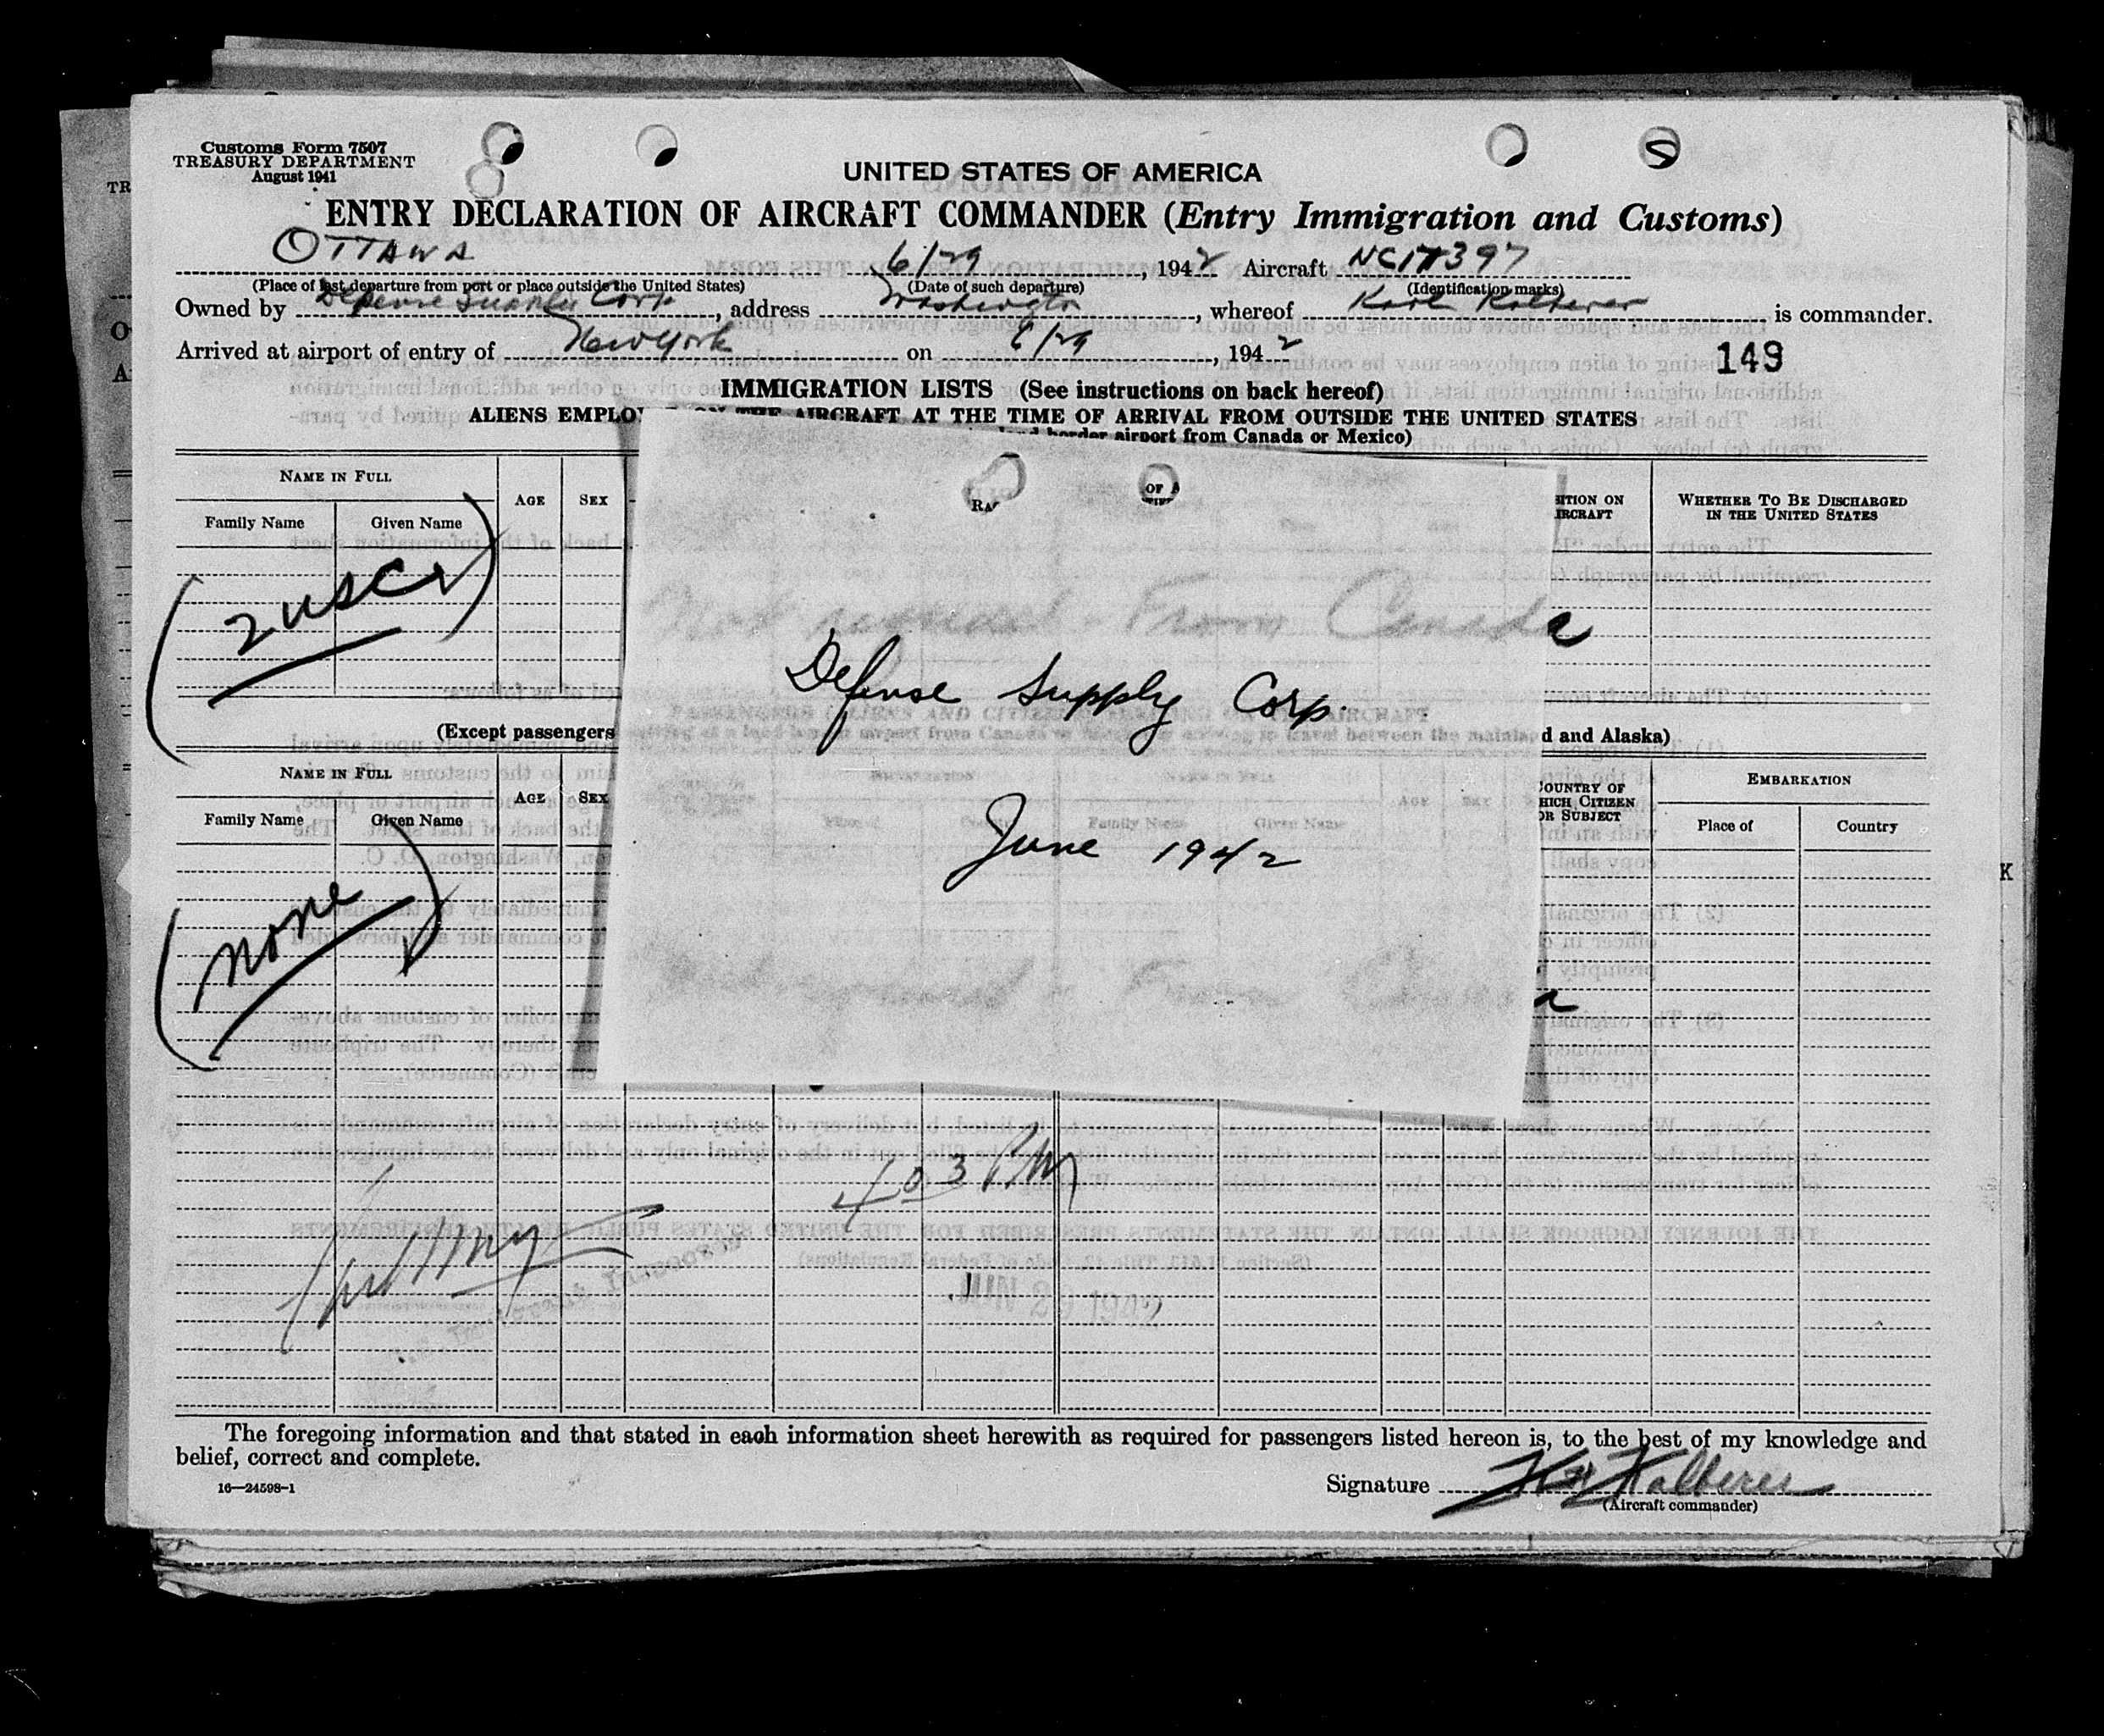 Customs Form 7507
TREASURY DEPARTMENT
August 1941
UNITED STATES OF AMERICA
ENTRY DECLARATION OF AIRCRAFT COMMANDER (Entry Immigration and Customs)
OTTAWA 6/29, 1942 Aircraft NC17397
(Place of last departure from port or place outside the United States) (Date of such departure) (Identification marks)
Owned by Defense Supply Corp, address Washington, whereof Karl is commander.
Arrived at airport of entry of New York on 6/29, 1942
149
IMMIGRATION LISTS (See instructions on back hereof)
ALIENS EMPLO AIRCRAFT AT THE TIME OF ARRIVAL FROM OUTSIDE THE UNITED STATES
border airport from Canada or Mexico)
NAME IN FULL AGE SEX ITION ON IRCRAFT WHETHER TO BE DISCHARGED IN THE UNITED STATES
Family Name Given Name
RA OF A
(2 USC)
Not manifest - From Canada
Defense Supply Corp.
(Except passengers d and Alaska)
NAME IN FULL AGE SEX OUNTRY OF HICH CITIZEN OR SUBJECT EMBARKATION
Family Name Given Name Place of Country
June 1942
(none)
4 03 PM
The foregoing information and that stated in each information sheet herewith as required for passengers listed hereon is, to the best of my knowledge and
belief, correct and complete.
16—24598-1
Signature
(Aircraft commander)